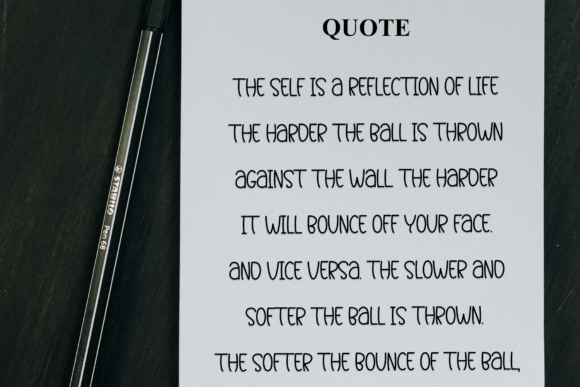 QUOTE
THE SELF IS a REFLECTION OF LIFE
THE HaRDER THE BaLL IS THROWN
aGaINST THE WaLL THE HaRDER
IT WILL BOUNCE OFF YOUR FaCE.
aND VICE VERSa. THE SLOWER aND
SOFTER THE BaLL IS THROWN.
THE SOFTER THE BOUNCE OF THE BaLL,
STABILO Pen 68